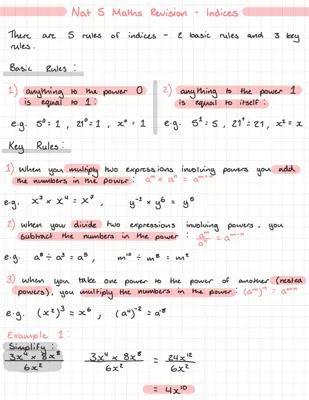 Nat 5 Maths Revision - Indices
There are 5 rules of indices - 2 basic rules and 3 key
rules.
Basic Rules:
1) anything to the power 0 is equal to 1:
e.g. 5⁰ = 1, 21⁰ = 1, x⁰ = 1
2) anything to the power 1 is equal to itself:
e.g. 5¹ = 5, 21¹ = 21, x¹ = x
Key Rules:
1) When you multiply two expressions involving powers you add
the numbers in the power: aᵐ × aⁿ = aᵐ⁺ⁿ
e.g. x³ × x⁴ = x⁷, y⁻¹ × y⁶ = y⁵
2) when you divide two expressions involving powers, you
subtract the numbers in the power: aᵐ/aⁿ = aᵐ⁻ⁿ
e.g. a⁸ ÷ a³ = a⁵, m¹⁰ ÷ m⁸ = m²
3) when you take one power to the power of another (nested
powers), you multiply the numbers in the power: (aᵐ)ⁿ = aᵐˣⁿ
e.g. (x²)³ = x⁶, (a⁴)⁻² = a⁻⁸
Example 1:
Simplify:
3x⁴ × 8x⁸/6x² 3x⁴ × 8x⁸/6x² = 24x¹²/6x²
= 4x¹⁰